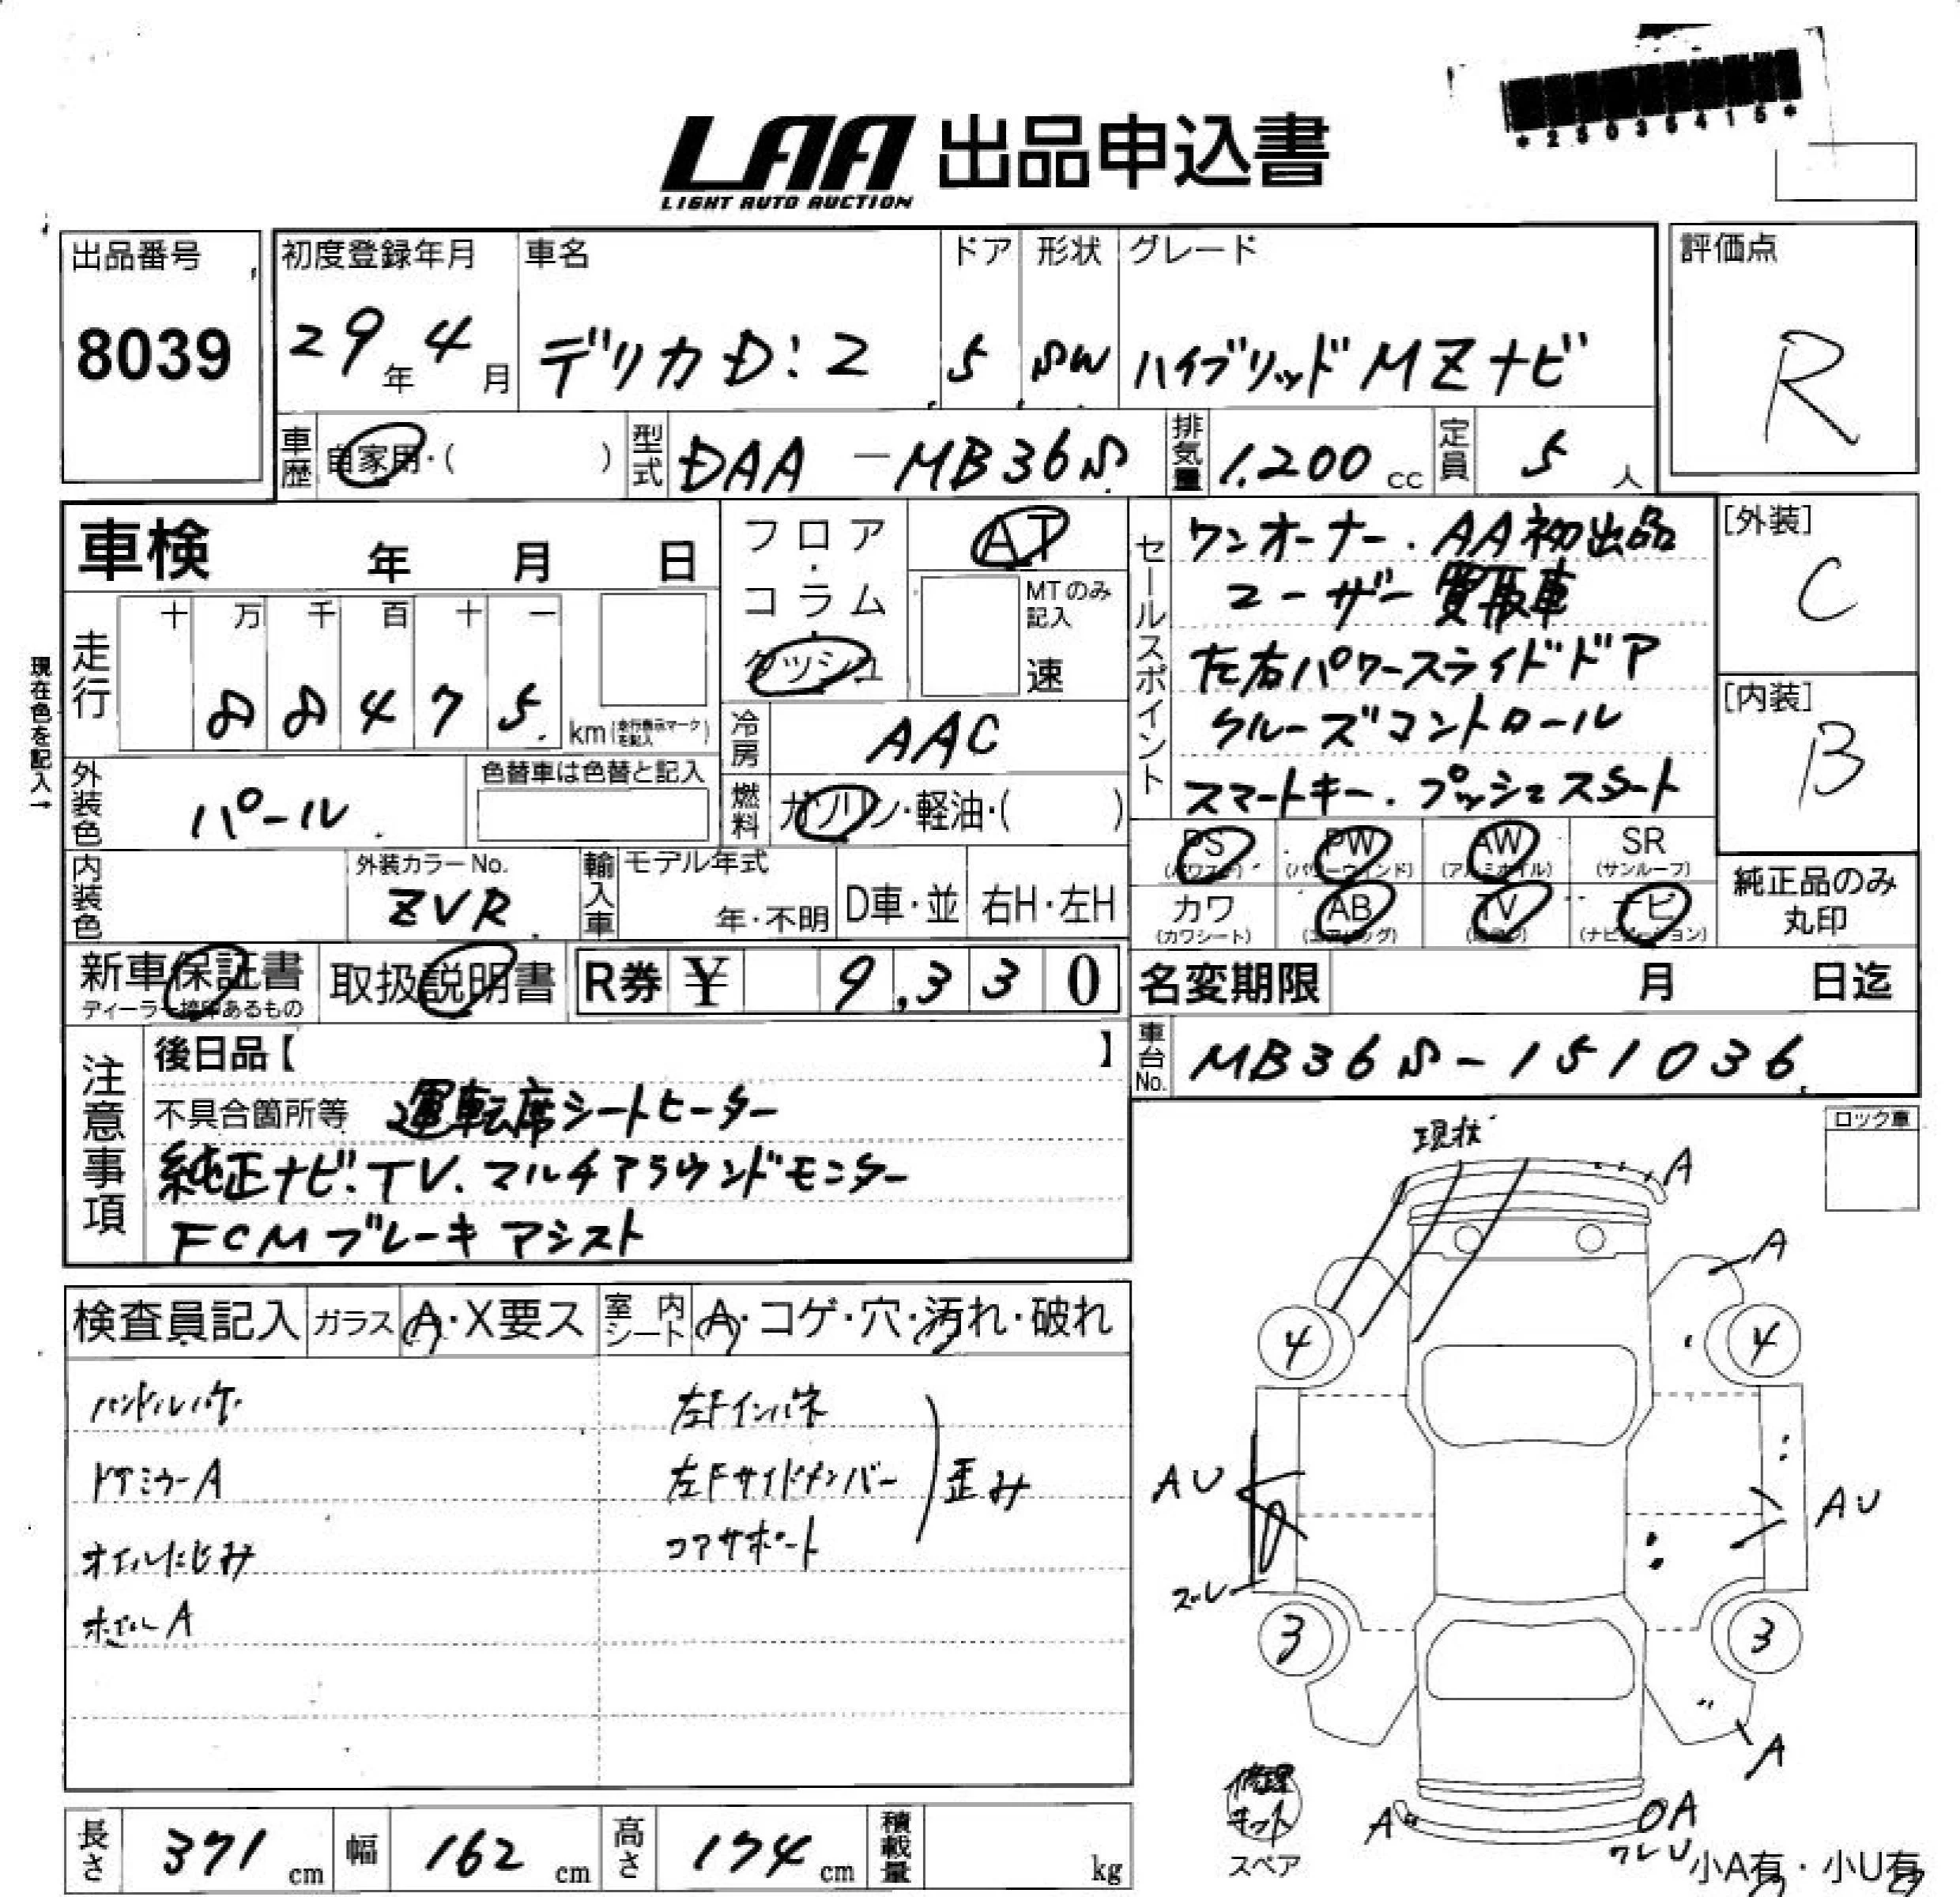 *25035415*
LAA 出品申込書
LIGHT AUTO AUCTION
出品番号
8039
初度登録年月
29年4月
車名
デリカD:2
ドア
5
形状
SW
グレード
ハイブリッドMZナビ
評価点
R
車歴 自家用・( )
型式 DAA-MB36S
排気量 1,200 cc
定員 5 人
車検 年 月 日
フロア・コラム・ダッシュ
AT
MTのみ記入
速
走行
十 万 千 百 十 一
8 8 4 7 5
km(走行表示マークを記入)
現在色を記入→
冷房 AAC
燃料 ガソリン・軽油・( )
外装色 パール
色替車は色替と記入
内装色
外装カラーNo.
ZVR
輸入車
モデル年式
年・不明
D車・並
右H・左H
セールスポイント
ワンオーナー.AA初出品
ユーザー買取車
左右パワースライドドア
クルーズコントロール
スマートキー.プッシュスタート
[外装]
C
[内装]
B
PS (パワステ) PW (パワーウインド) AW (アルミホイル) SR (サンルーフ)
カワ (カワシート) AB (エアバッグ) TV ナビ (ナビゲーション)
純正品のみ
丸印
新車保証書
ディーラー捺印あるもの
取扱説明書
R券 ¥ 9,330
名変期限 月 日迄
車台No. MB36S-151036
注意事項
後日品【 】
不具合箇所等 運転席シートヒーター
純正ナビ.TV.マルチアラウンドモニター
FCMブレーキアシスト
ロック車
検査員記入
ガラス A・X要ス
室内シート A・コゲ・穴・汚れ・破れ
ハンドルハゲ
ドアミラーA
オイルにじみ
ホイルA
左Fインパネ
左Fサイドメンバー
コアサポート
歪み
現状
A
A
4
4
AU
AU
ズレ
3
3
A
A
OA
ワレU
修理キット
スペア
小A有・小U有
長さ 371 cm
幅 162 cm
高さ 174 cm
積載量 kg